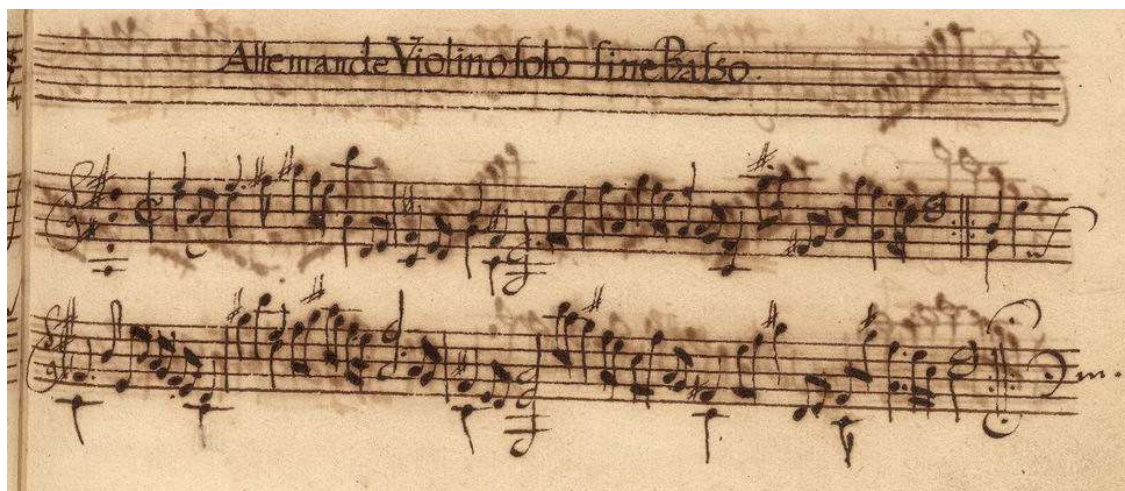 Allemande Violino solo sine Basso.